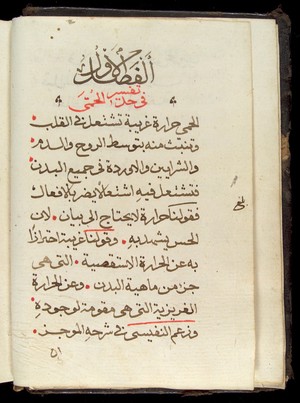 الفصل الاول
في حد تفسير الحمى
الحمى حرارة غريبة تشتعل في القلب
وتنبث منه بتوسط الروح والدم
والشرايين والاوردة في جميع البدن
فتشتعل فيه اشتعالا يضر بالافعال
فقولنا حرارة لا يحتاج الى بيان لان
الحس يشهد به وقولنا غريبة احترازا
به عن الحرارة الاسطقسية التى هى
جزء من ماهية البدن وعن الحرارة
الغريزية التى هى مقومة لوجوده
وزعم النفيسى في شرحه الموجز